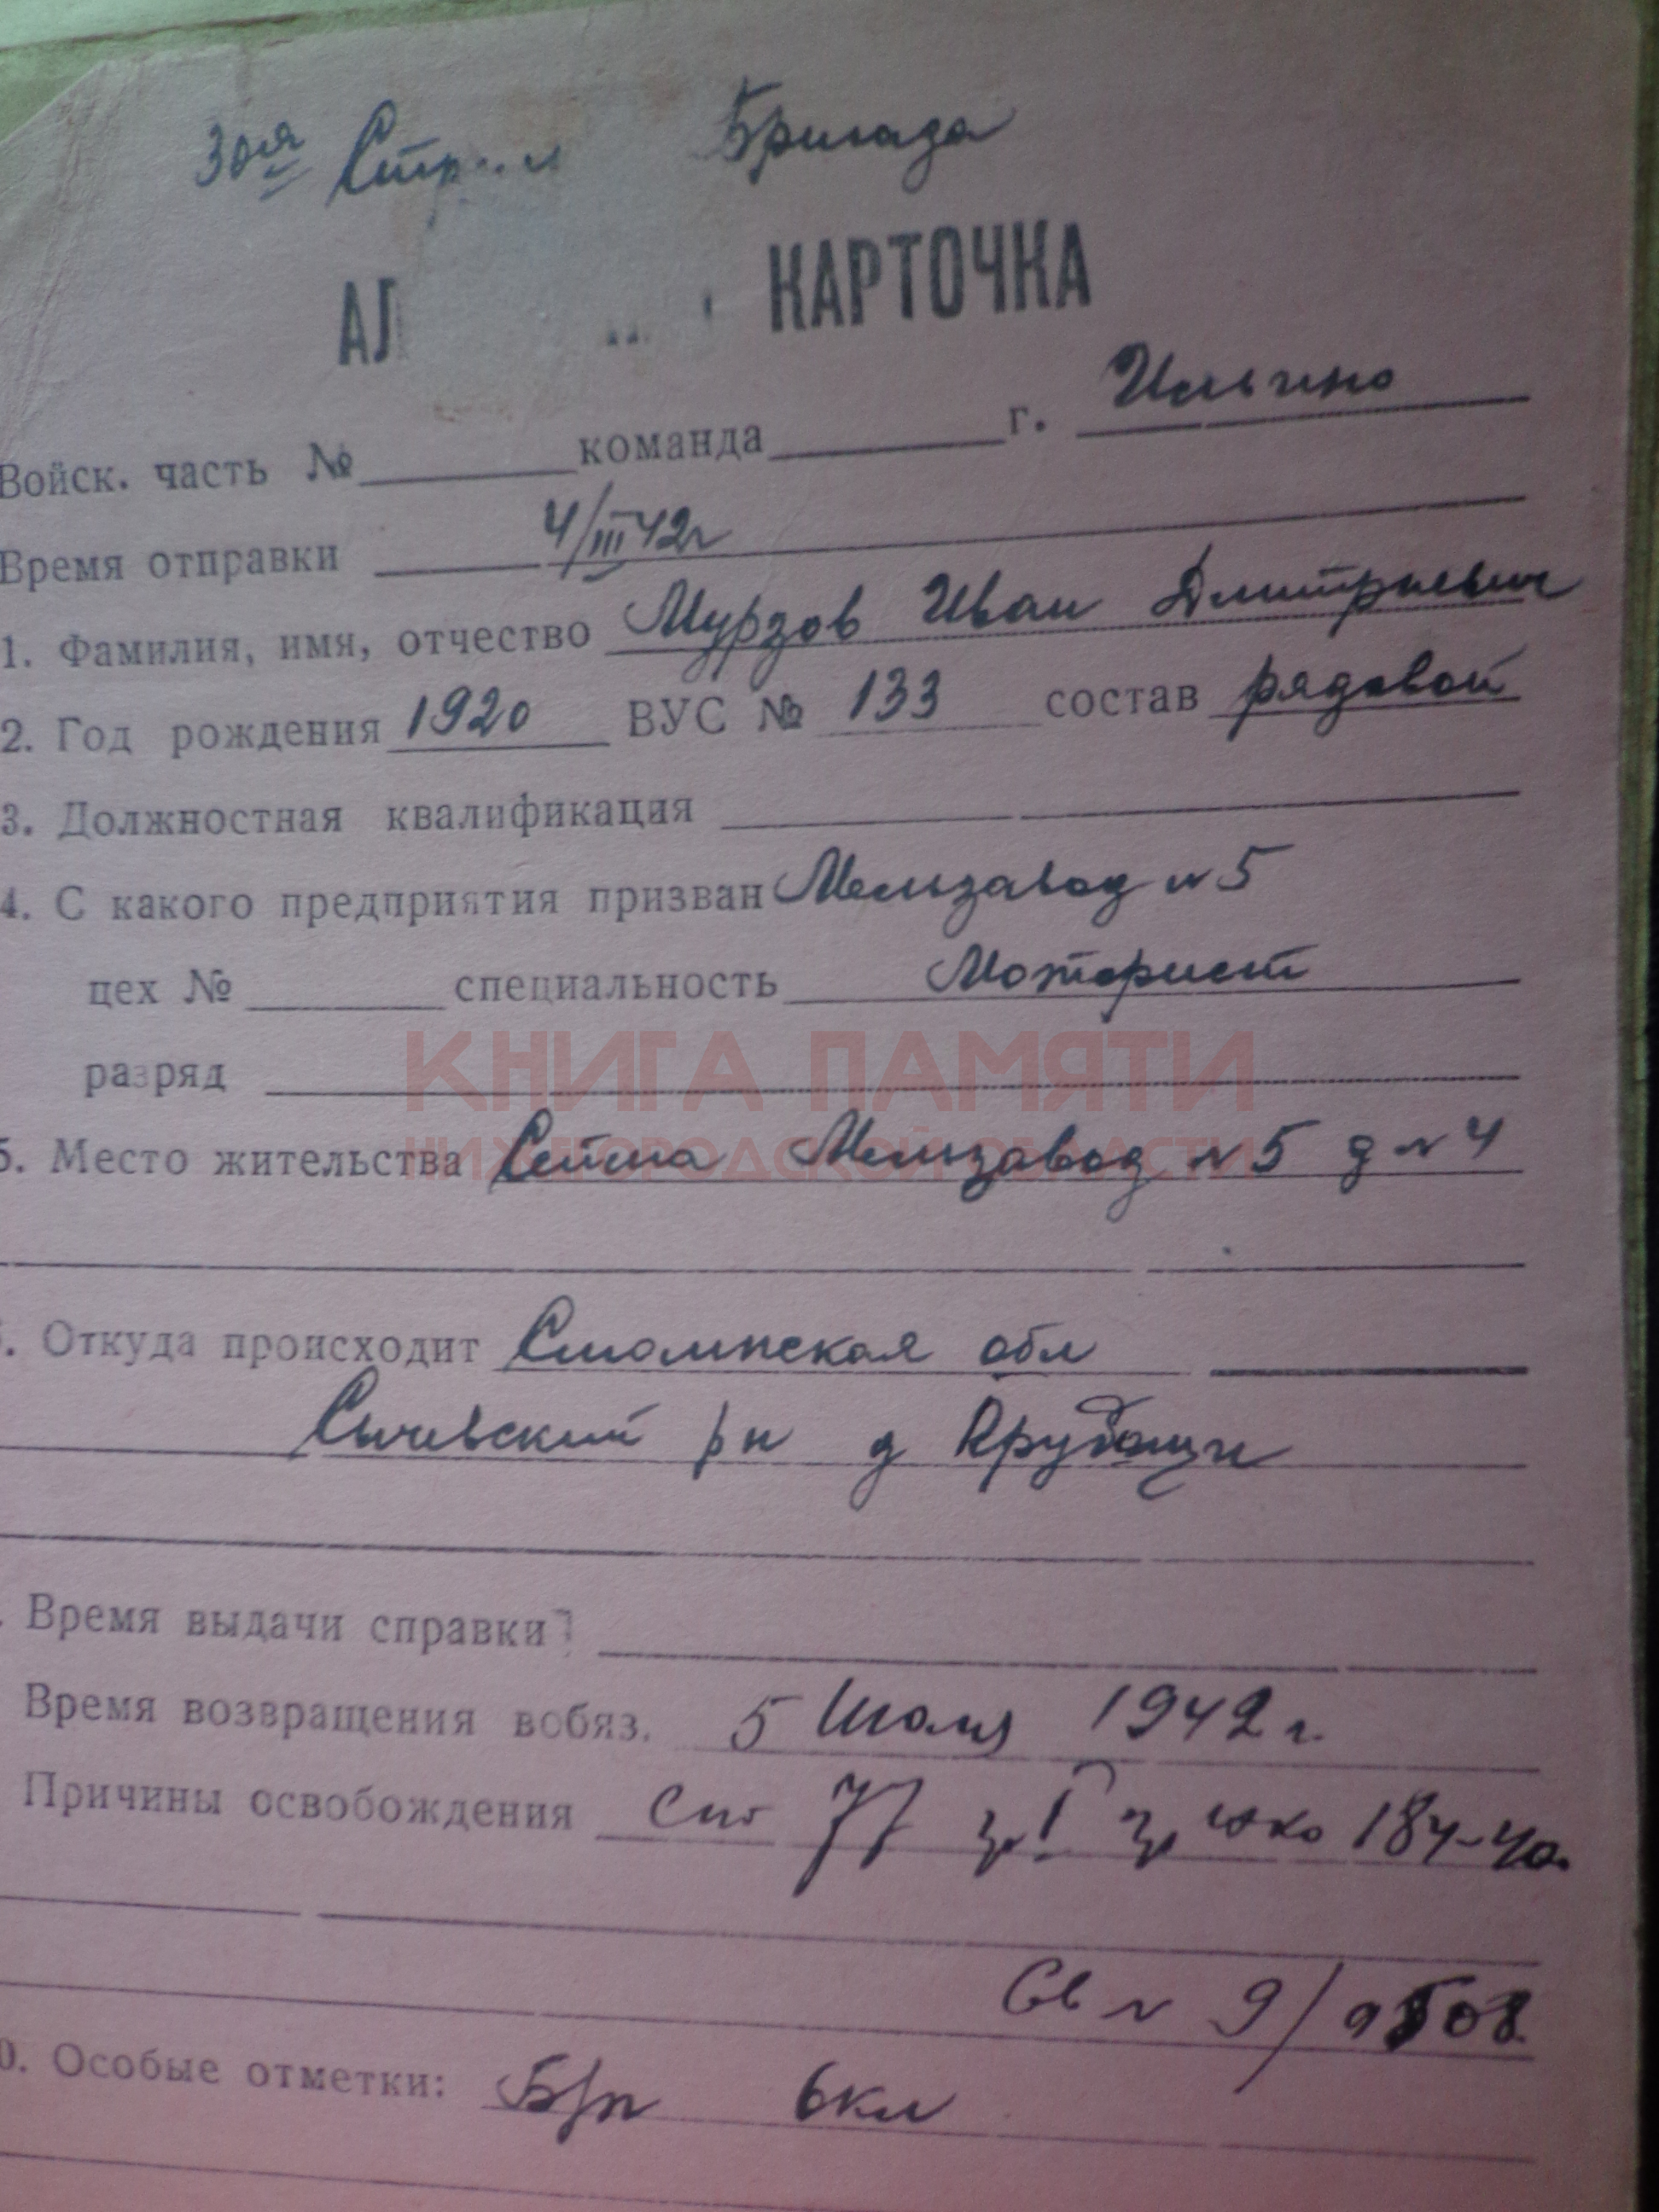 30ая Стр Бригада
АЛ КАРТОЧКА
Войск. часть № команда г. Ильино
Время отправки 4/III 42г
1. Фамилия, имя, отчество Мурзов Иван Дмитриевич
2. Год рождения 1920 ВУС № 133 состав рядовой
3. Должностная квалификация
4. С какого предприятия призван Мельзавод N 5
цех № специальность Моторист
разряд
КНИГА ПАМЯТИ
НИЖЕГОРОДСКОЙ ОБЛАСТИ
5. Место жительства Сейма Мельзавод N 5 д N 4
. Откуда происходит Смоленская обл
Сычевский р н д
. Время выдачи справки
Время возвращения вобяз. 5 Июля 1942 г.
Причины освобождения 77 I НКО 184-40.
Св N 9/
0. Особые отметки: Б/п 6 кл